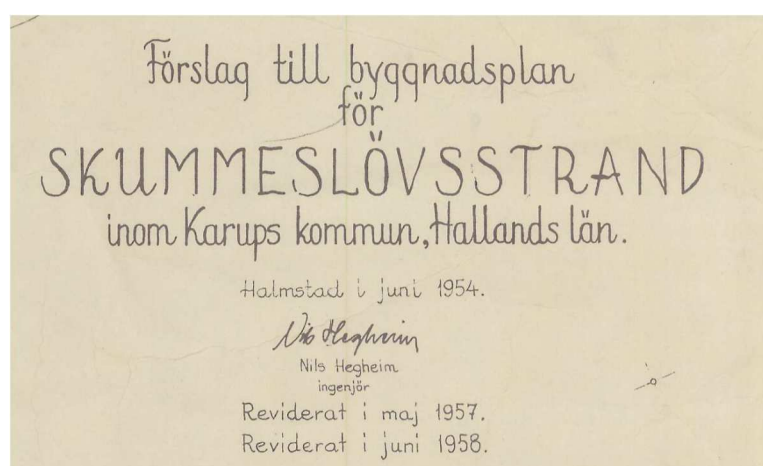 Förslag till byggnadsplan
för
SKUMMESLÖVSSTRAND
inom Karups kommun, Hallands län.
Halmstad i juni 1954.
Nils Hegheim
Nils Hegheim
ingenjör
Reviderat i maj 1957.
Reviderat i juni 1958.